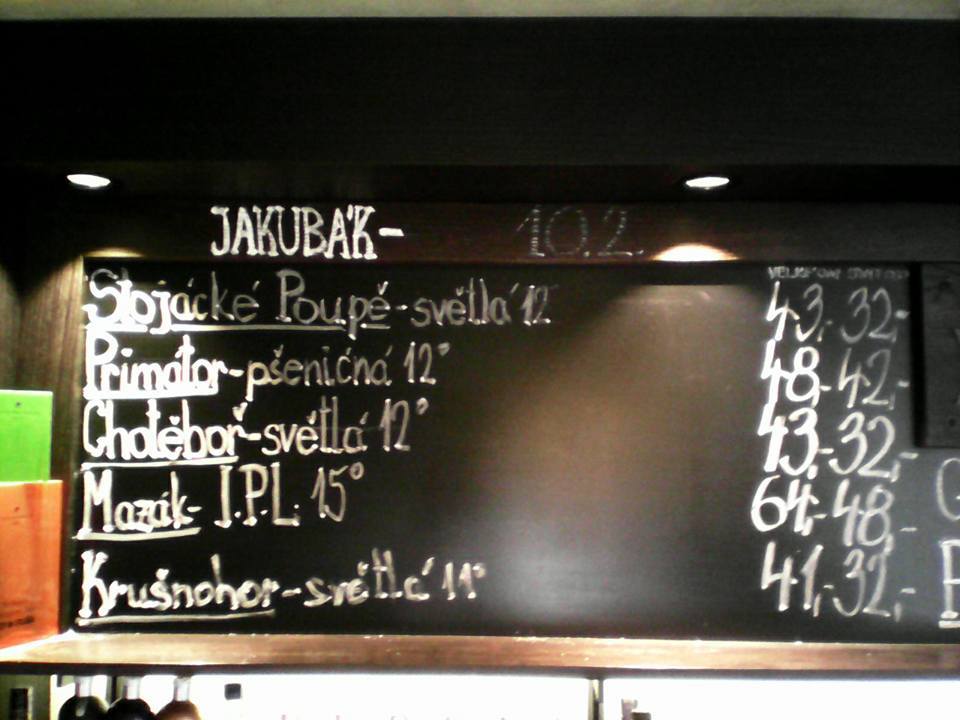 JAKUBÁK- 10.2.
Stojácké Poupě-světlá 12 43,- 32,-
Primátor-pšeničná 12° 48,- 42,-
Chotěboř-světlá 12° 43,- 32,-
Mazák- I.P.L. 15° 64,- 48,-
Krušnohor-světlá 11° 41,- 32,-